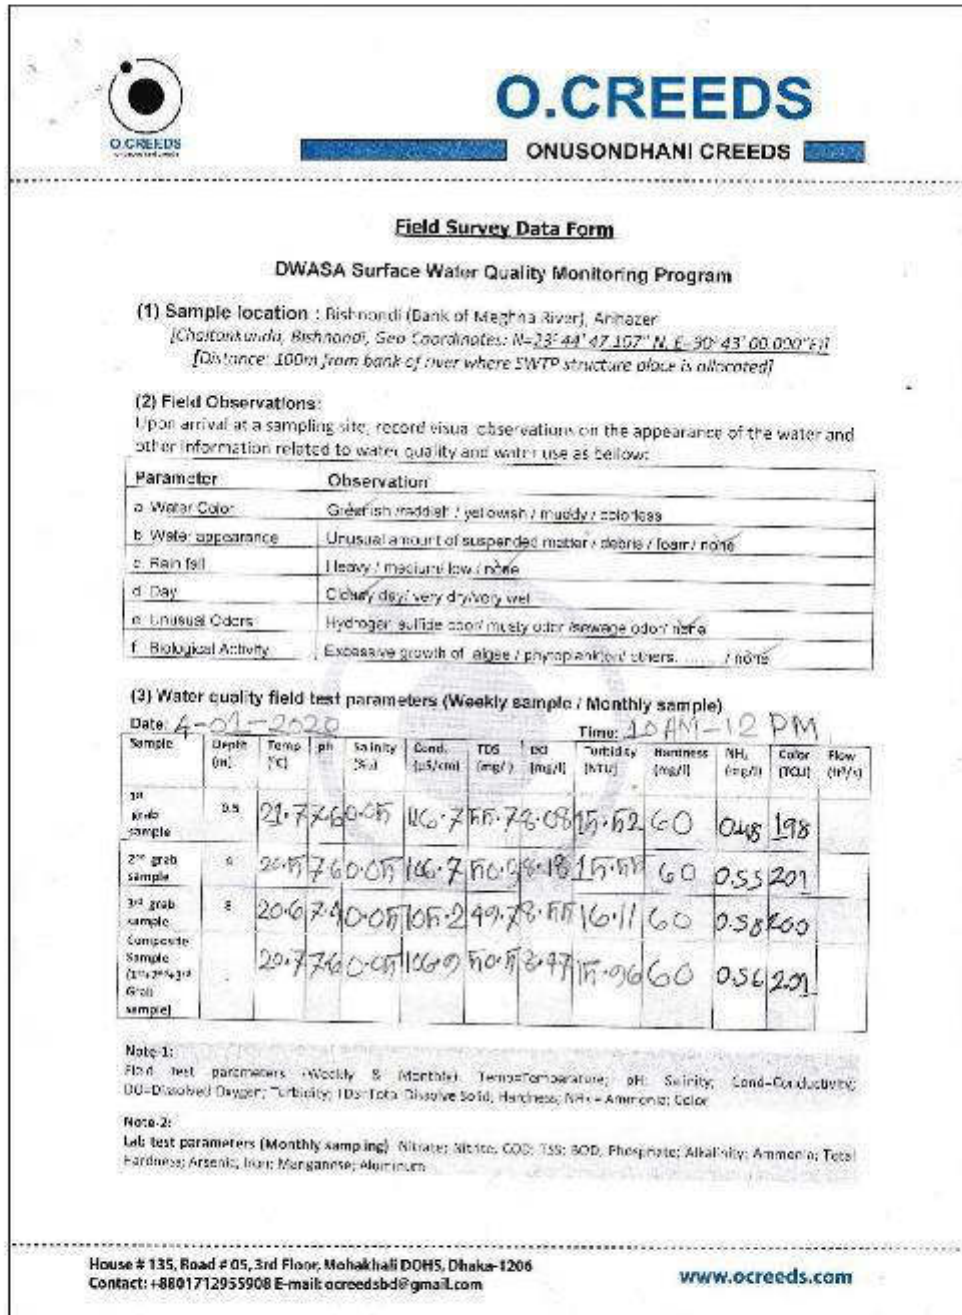 O.CREEDS
O.CREEDS
ONUSONDHANI CREEDS
Field Survey Data Form
DWASA Surface Water Quality Monitoring Program
(1) Sample location : Bishnondi (Bank of Meghna River), Arihazer
[Chaitonkanda, Bishnondi, Geo Coordinates: N=23° 44' 47.107" N, E=90° 43' 00.000"E)]
[Distance: 100m from bank of river where SWTP structure place is allocated]
(2) Field Observations:
Upon arrival at a sampling site, record visual observations on the appearance of the water and
other information related to water quality and water use as bellow:
Parameter Observation
a. Water Color Greenish /reddish / yellowish / muddy / colorless
b. Water appearance Unusual amount of suspended matter / debris / foam / none
c. Rain fall Heavy / medium/ low / none
d. Day Cloudy day/ very dry/very wet
e. Unusual Odors Hydrogen sulfide odor/ musty odor /sewage odor/ none
f. Biological Activity Excessive growth of algae / phytoplankton/ others. ...... / none
(3) Water quality field test parameters (Weekly sample / Monthly sample)
Date: 4-01-2020 Time: 10 AM-12 PM
Sample Depth (m) Temp (°C) pH Salinity (‰) Cond. (µS/cm) TDS (mg/l) DO (mg/l) Turbidity (NTU) Hardness (mg/l) NH₃ (mg/l) Color (TCU) Flow (ft³/s)
1st grab sample 0.5 21.7 7.6 0.05 116.7 55.7 8.08 15.52 60 0.48 198
2nd grab sample 4 20.5 7.6 0.05 106.7 8.18 15.55 60 0.55 201
3rd grab sample 8 20.6 7.4 0.05 105.2 49.7 8.55 16.11 60 0.58 200
Composite Sample (1st+2nd+3rd Grab sample) 20.7 7.6 0.05 106.9 50.5 8.47 15.96 60 0.56 201
Note-1:
Field test parameters (Weekly & Monthly) Temp=Temperature; pH; Salinity; Cond=Conductivity;
DO=Dissolved Oxygen; Turbidity; TDS=Total Dissolve Solid; Hardness; NH₃ = Ammonia; Color
Note-2:
Lab test parameters (Monthly sampling) Nitrate; Nitrite; COD; TSS; BOD; Phosphate; Alkalinity; Ammonia; Total
Hardness; Arsenic; Iron; Manganese; Aluminum
House # 135, Road # 05, 3rd Floor, Mohakhali DOHS, Dhaka-1206
Contact: +8801712955908 E-mail: ocreedsbd@gmail.com
www.ocreeds.com